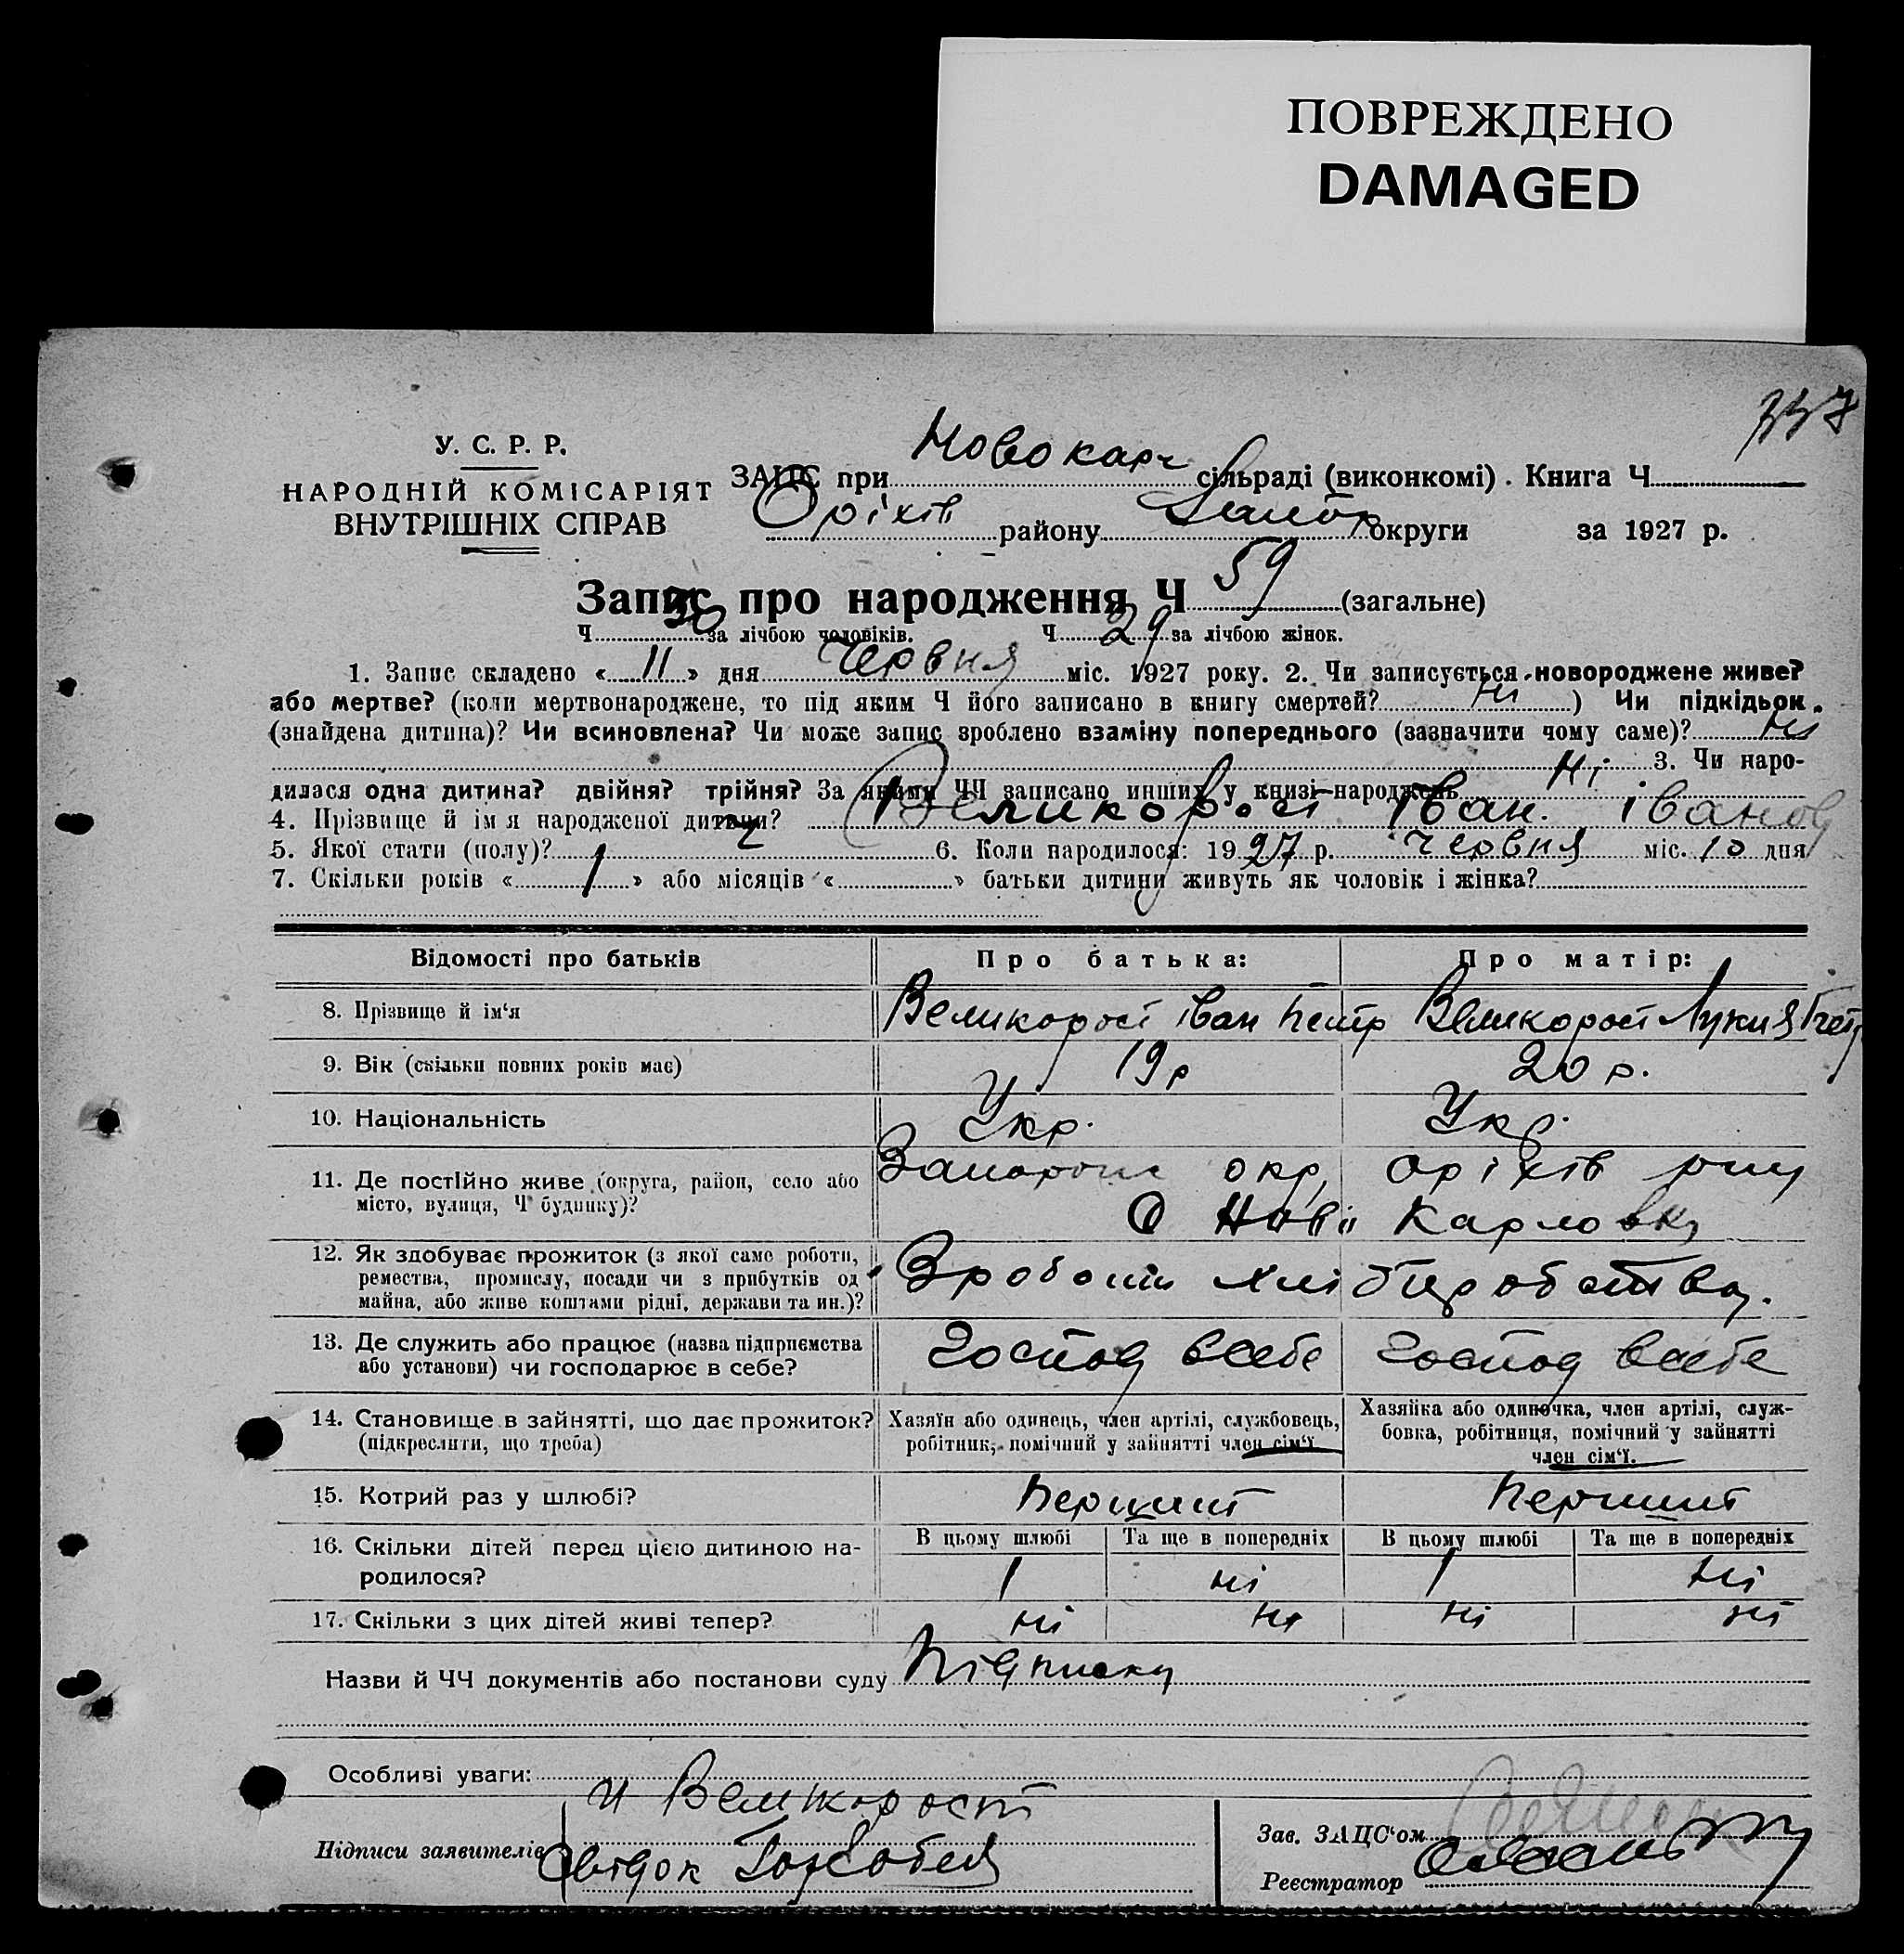 ПОВРЕЖДЕНО
DAMAGED
У. С. Р. Р.
НАРОДНІЙ КОМІСАРІЯТ
ВНУТРІШНІХ СПРАВ
ЗАПС при Новокарл сільраді (виконкомі). Книга Ч
Оріхів району Запор округи за 1927 р.
Запис про народження Ч 59 (загальне)
Ч 30 за лічбою чоловіків. Ч 29 за лічбою жінок.
1. Запис складено « 11 » дня Червня міс. 1927 року. 2. Чи записується новороджене живе?
або мертве? (коли мертвонароджене, то під яким Ч його записано в книгу смертей? Ні ) Чи підкідьок
(знайдена дитина)? Чи всиновлена? Чи може запис зроблено взаміну попереднього (зазначити чому саме)? Ні
Ні 3. Чи наро-
дилася одна дитина? двійня? трійня? За якими ЧЧ записано инших у книзі народжень
4. Прізвище й імя народженої дитини? Великорост Іван. Іванов
5. Якої стати (полу)? ч 6. Коли народилося: 1927 р. Червня міс. 10 дня
7. Скільки років « 1 » або місяців « » батьки дитини живуть як чоловік і жінка?
Відомості про батьків Про батька: Про матір:
8. Прізвище й ім‘я Великорост Іван Петр Великорост Лукия
9. Вік (скільки повних років має) 19 р 20 р.
10. Національність Укр. Укр.
11. Де постійно живе (округа, район, село або Запорож окр, Оріхів рну
місто, вулиця, Ч будинку)? С Нові Карловку
12. Як здобуває прожиток (з якої саме роботи,
ремества, промислу, посади чи з прибутків од Зроботи хліборобства.
майна, або живе коштами рідні, держави та ин.)?
13. Де служить або працює (назва підприємства Господ всебе Господ всебе
або установи) чи господарює в себе?
14. Становище в зайнятті, що дає прожиток? Хазяїн або одинець, член артілі, службовець, Хазяйка або одиночка, член артілі, служ-
(підкреслити, що треба) робітник, помічний у зайнятті член сім‘ї бовка, робітниця, помічний у зайнятті
член сім‘ї.
15. Котрий раз у шлюбі? Перший Перший
16. Скільки дітей перед цією дитиною на- В цьому шлюбі Та ще в попередніх В цьому шлюбі Та ще в попередніх
родилося? 1 ні 1 Ні
17. Скільки з цих дітей живі тепер? ні ні ні ні
Назви й ЧЧ документів або постанови суду Підписку
Особливі уваги:
И Великорост
Підписи заявителів Свідок
Зав. ЗАЦС‘ом
Реєстратор